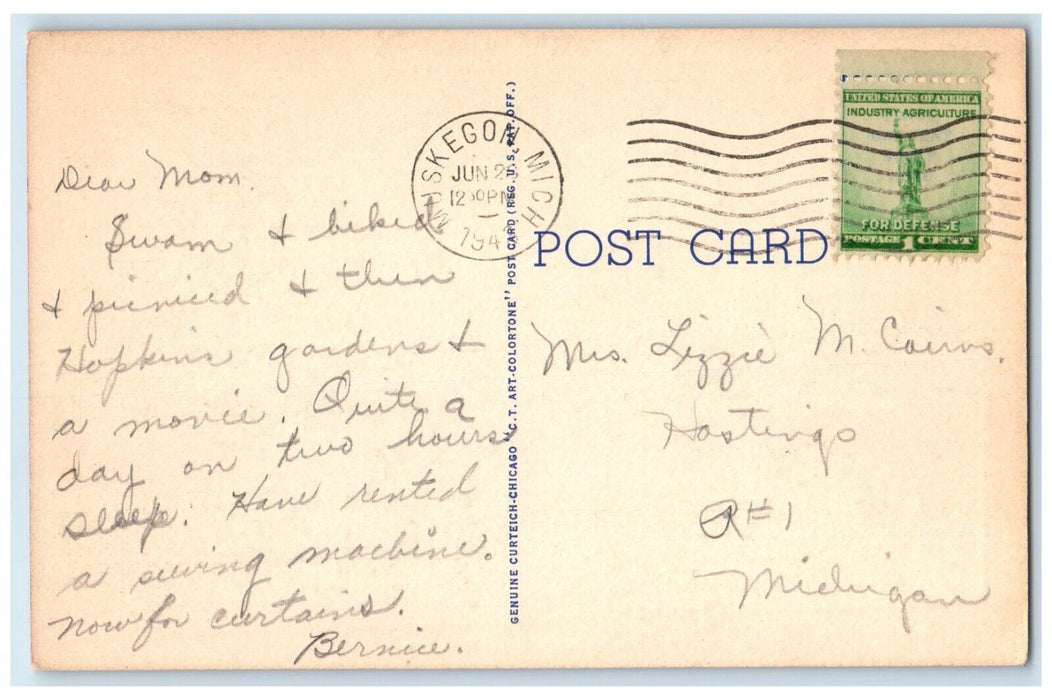 Dear Mom.
Swam & biked
& picniced & then
Hopkins gardens &
a movie. Quite a
day on two hours
sleep. Have rented
a sewing machine.
now for curtains.
Bernice.
GENUINE CURTEICH-CHICAGO "C.T. ART-COLORTONE" POST CARD (REG. U.S. PAT. OFF.)
MUSKEGON, MICH
JUN 2
12 30 PM
194
UNITED STATES OF AMERICA
INDUSTRY AGRICULTURE
FOR DEFENSE
POSTAGE 1 CENT
POST CARD
Mrs. Lizzie M. Cairns.
Hastings
R#1
Michigan